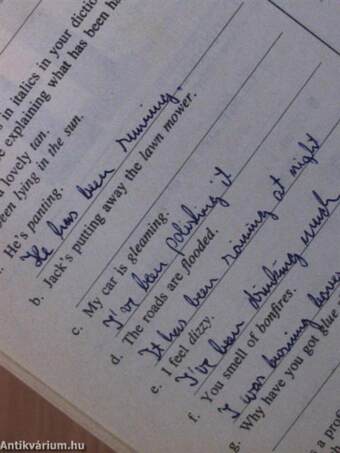 s in italics in your dictio
e explaining what has been ha
a lovely tan.
been lying in the sun.
He's panting.
He has been running.
b. Jack's putting away the lawn mower.
c. My car is gleaming.
I've been polishing it
d. The roads are flooded.
It has been raining at night
e. I feel dizzy.
I've been drinking much
f. You smell of bonfires.
I was burning
g. Why have you got glue
s a pro
Antikvárium.hu